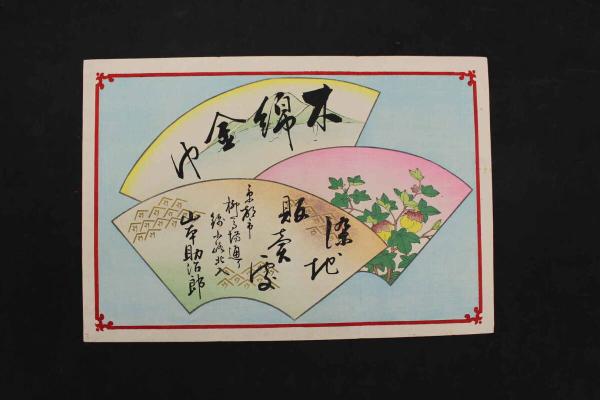 木綿金巾
染地
販賣處
京都市
柳馬場通り
綾小路北入
山本助治郎